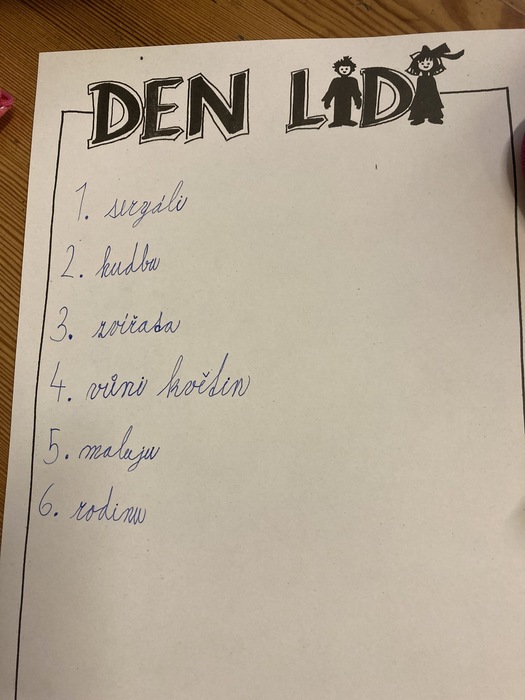 DEN LIDÍ
1. seryáli
2. hudbu
3. zvířata
4. vůni květin
5. maluju
6. rodinu